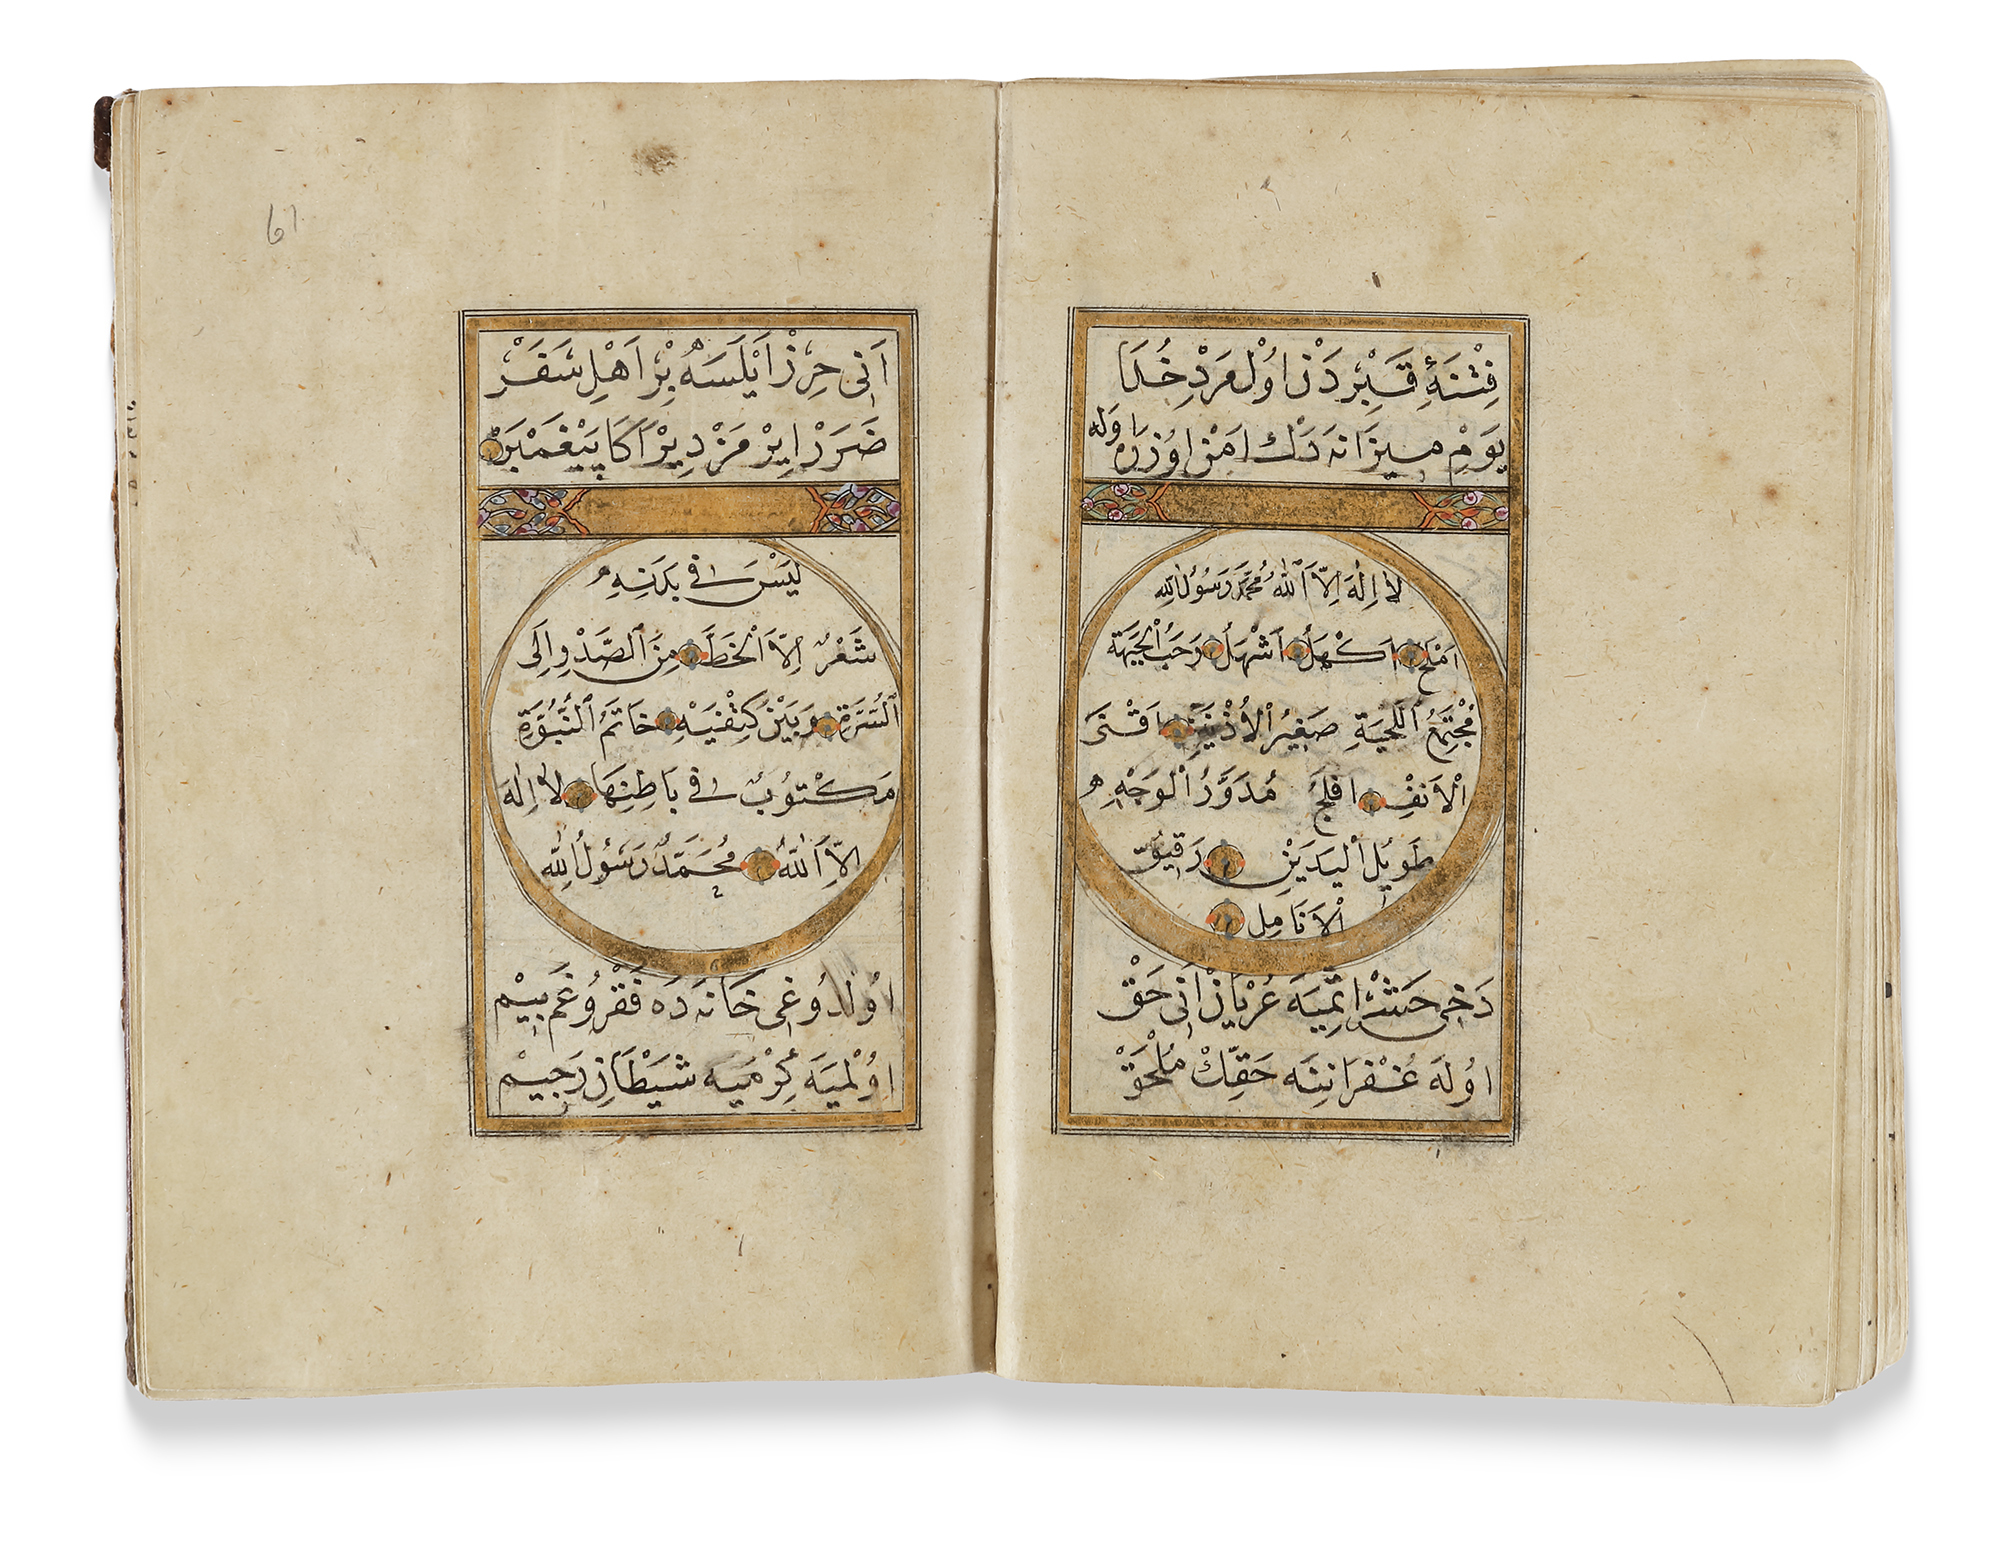 فِتْنَۀِ قَبِرْدَنْ اُولْ مَرْدِ خُدَا
يَوْمِ مِيزَانَه دَكْ اَمْنْ اُوزَرَه اُولَه
لَا اِلٰهَ اِلَّا اَللّٰهُ مُحَمَّدٌ رَسُولُ اللّٰهِ
اَمْلَحُ اَكْهَلُ اَشْهَلُ وَحَبُ الْجَبْهَةِ
مُجْتَمِعُ اللِّحْيَةِ صَغِيرُ الْاُذْنَيْنِ اَقْنَى
الْاَنْفِ اَفْلَجُ مُدَوَّرُ الْوَجْهِ
طَوِيلُ الْيَدَيْنِ رَقِيقُ
الْاَنَامِلِ
دَخِى حَشْر اِتْمِيَه عُرْيَانْ اَنِى حَقْ
اُولَه غُفْرَانِنَه حَقِّكْ مُلْحَقْ
۶۱
اَنِى حِرْزْ اَيْلَسَه بِرْ اَهْلِ سَفَرْ
ضَرَرْ اِيرْمَزْ دِيرْ اَكَا پَيْغَمْبَرْ
لَيْسَ فِى بَدَنِهِ
شَعْرٌ اِلَّا الْخَطَّ مِنَ الصَّدْرِ اِلَى
السُّرَّةِ وَبَيْنَ كَتِفَيْهِ خَاتَمُ النُّبُوَّةِ
مَكْتُوبٌ فِى بَاطِنِهَا لَا اِلٰهَ
اِلَّا اللّٰهُ مُحَمَّدٌ رَسُولُ اللّٰهِ
اُولدُوغِى خَانَه دَه فَقْر وُ غَم بِيمْ
اُولْمِيَه كِرْمِيَه شَيْطَانِ رَجِيمْ